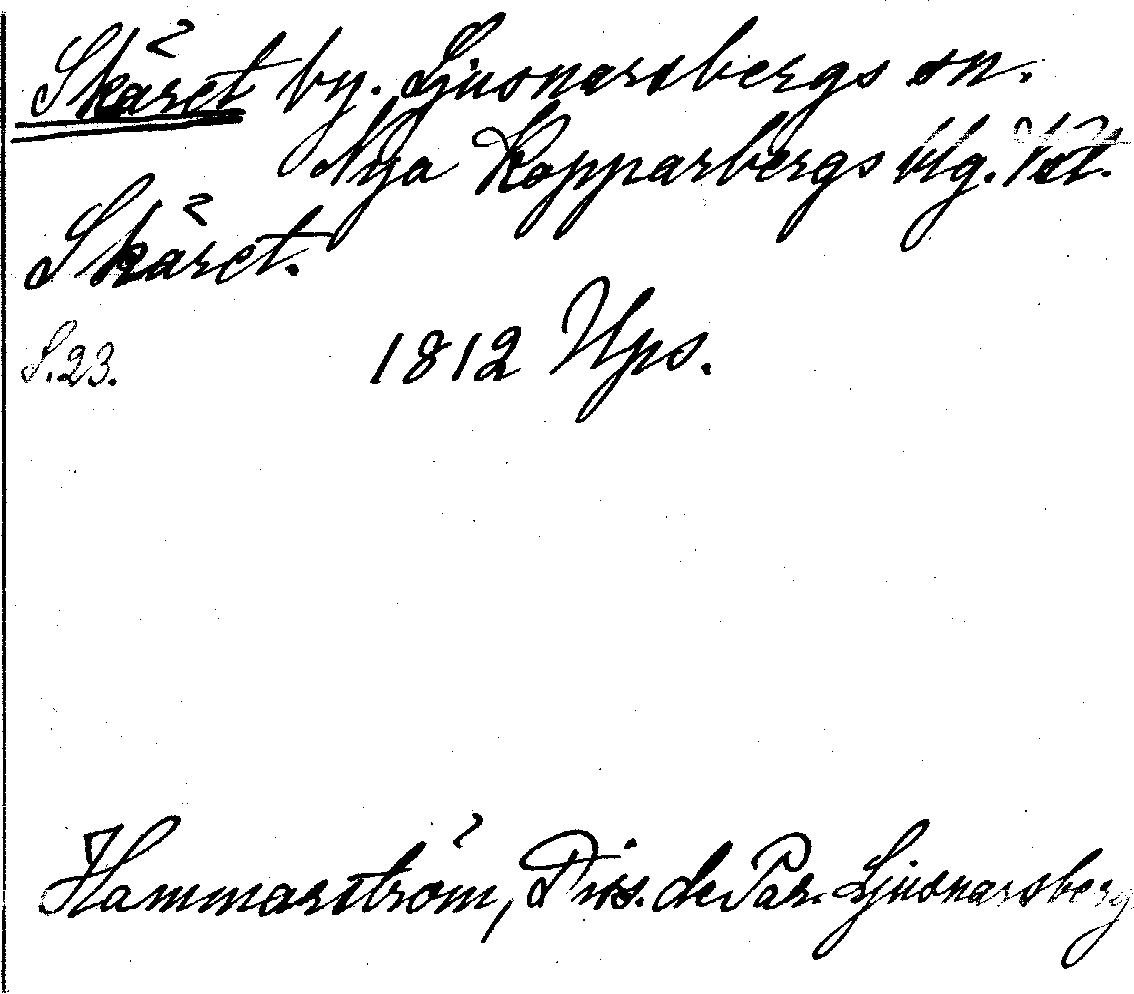 Skäret by. Ljusnarsbergs sn.
Nya Kopparbergs blg. Vstl.
Skäret.
S. 23. 1812 Ups.
Hammarström, Diss. de Par. Ljusnarsberg